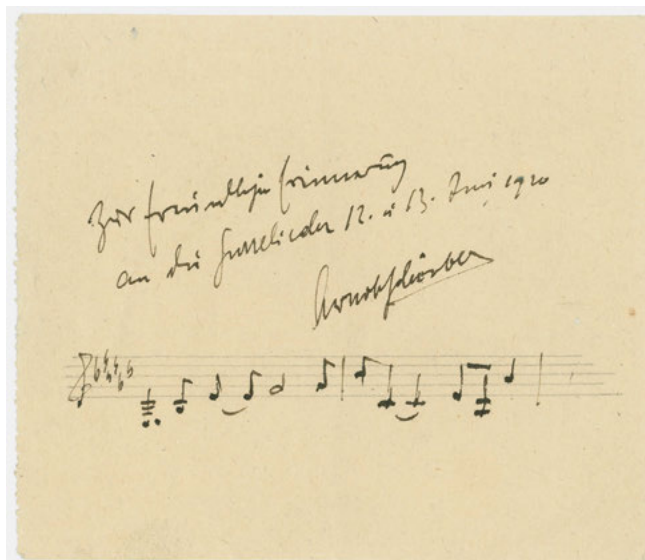 Zur freundlichen Erinnerung
an die Gurrelieder 12. u 13. Juni 1920
Arnold Schönberg